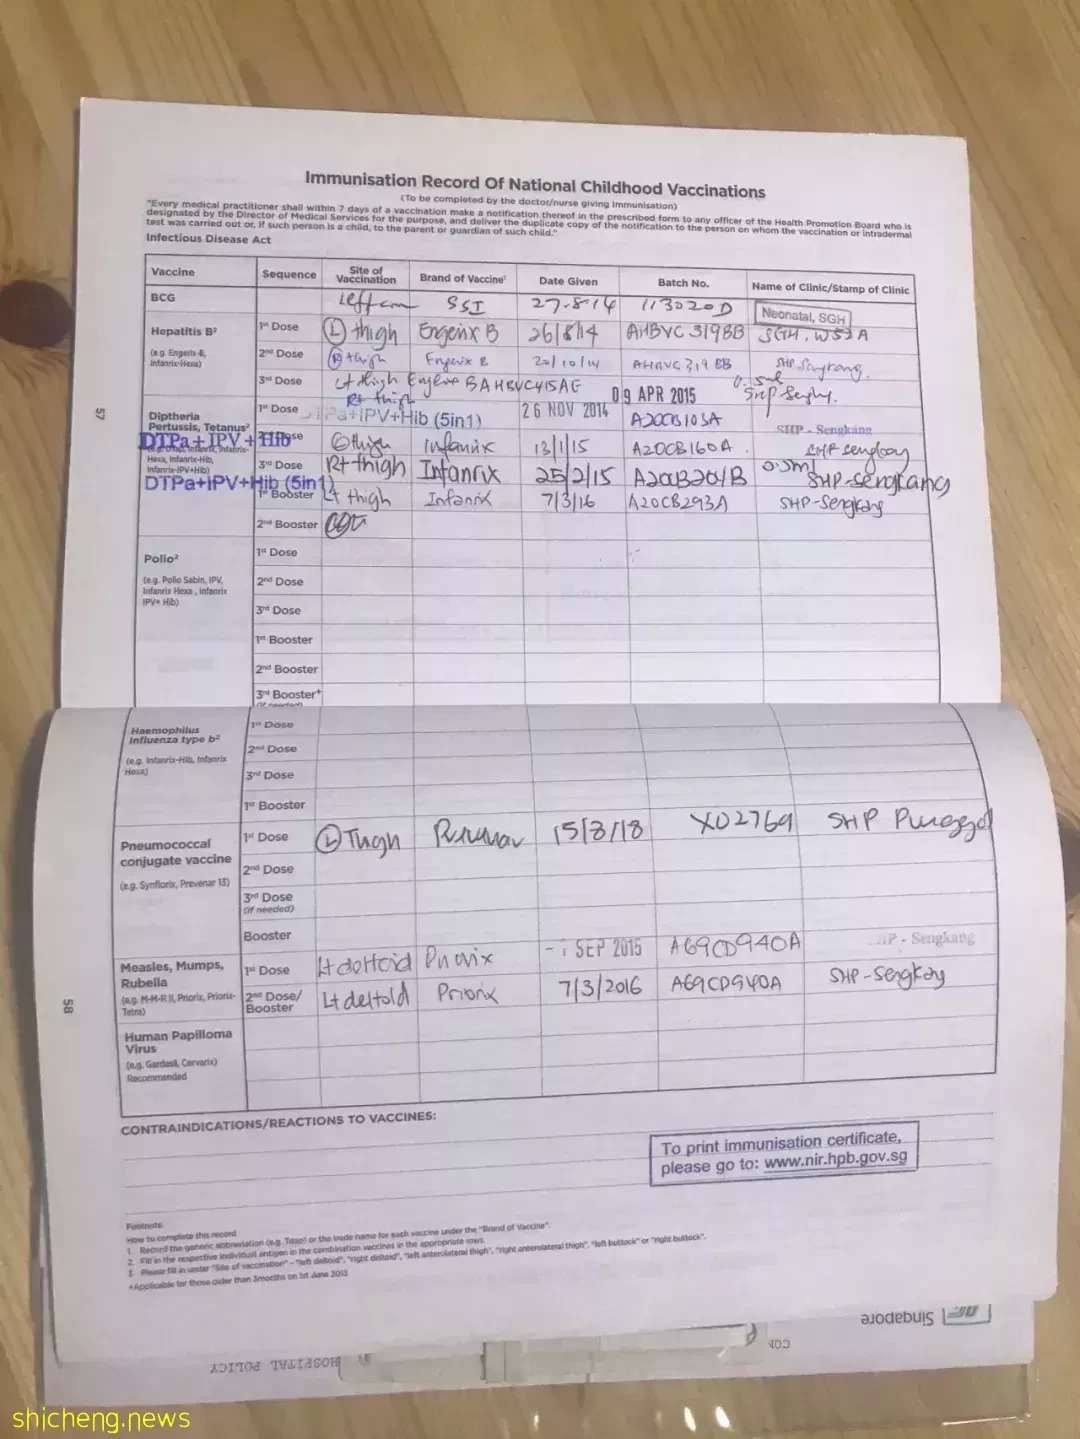 Immunisation Record Of National Childhood Vaccinations
(To be completed by the doctor/nurse giving immunisation)
"Every medical practitioner shall within 7 days of a vaccination make a notification thereof in the prescribed form to any officer of the Health Promotion Board who is
designated by the Director of Medical Services for the purpose, and deliver the duplicate copy of the notification to the person on whom the vaccination or intradermal
test was carried out or, if such person is a child, to the parent or guardian of such child."
Infectious Disease Act
Vaccine Sequence Site of Vaccination Brand of Vaccine¹ Date Given Batch No. Name of Clinic/Stamp of Clinic
BCG Left arm SSI 27.8.14 113020D Neonatal, SGH
Hepatitis B² 1st Dose (L) thigh Engerix B 26/8/14 AHBVC319BB SGH. W53A
(e.g. Engerix-B, Infanrix-Hexa) 2nd Dose (R) thigh Engerix B 20/10/14 AHBVC319BB SHP Sengkang.
3rd Dose Lt thigh Engerix B AHBVC415AE 09 APR 2015 SHP Sengkang
57
Diptheria Pertussis, Tetanus² 1st Dose Rt thigh DTPa+IPV+Hib (5in1) 26 NOV 2014 A20CB103A SHP - Sengkang
DTPa+IPV+Hib
2nd Dose thigh Infanrix 13/1/15 A20CB160A SHP Sengkang
Hexa, Infanrix-Hib,
Infanrix-IPV+Hib)
3rd Dose Rt thigh Infanrix 25/2/15 A20CB201B 0.5ml SHP-Sengkang
DTPa+IPV+Hib (5in1)
1st Booster Lt thigh Infanrix 7/3/16 A20CB293A SHP-Sengkang
2nd Booster
Polio² 1st Dose
(e.g. Polio Sabin, IPV, Infanrix Hexa, Infanrix IPV+ Hib) 2nd Dose
3rd Dose
1st Booster
2nd Booster
3rd Booster+
Haemophilus Influenza type b² 1st Dose
(e.g. Infanrix-Hib, Infanrix Hexa) 2nd Dose
3rd Dose
1st Booster
Pneumococcal conjugate vaccine 1st Dose (L) Thigh Prevenar 15/8/18 X02769 SHP Punggol
(e.g. Synflorix, Prevenar 13) 2nd Dose
3rd Dose (if needed)
Booster
Measles, Mumps, Rubella 1st Dose Lt deltoid Priorix SEP 2015 A69CD940A SHP - Sengkang
(e.g. M-M-R II, Priorix, Priorix-Tetra) 2nd Dose/ Booster Lt deltoid Priorix 7/3/2016 A69CD940A SHP-Sengkang
58
Human Papilloma Virus
(e.g. Gardasil, Cervarix)
Recommended
CONTRAINDICATIONS/REACTIONS TO VACCINES:
To print immunisation certificate,
please go to: www.nir.hpb.gov.sg
Footnote:
How to complete this record
1. Record the generic abbreviation (e.g. Tdap) or the trade name for each vaccine under the "Brand of Vaccine".
2. Fill in the respective individual antigen in the combination vaccines in the appropriate rows.
3. Please fill in under "Site of vaccination" - "left deltoid", "right deltoid", "left anterolateral thigh", "right anterolateral thigh", "left buttock" or "right buttock".
+Applicable for those older than 3months on 1st June 2013
Singapore
HOSPITAL POLICY
shicheng.news